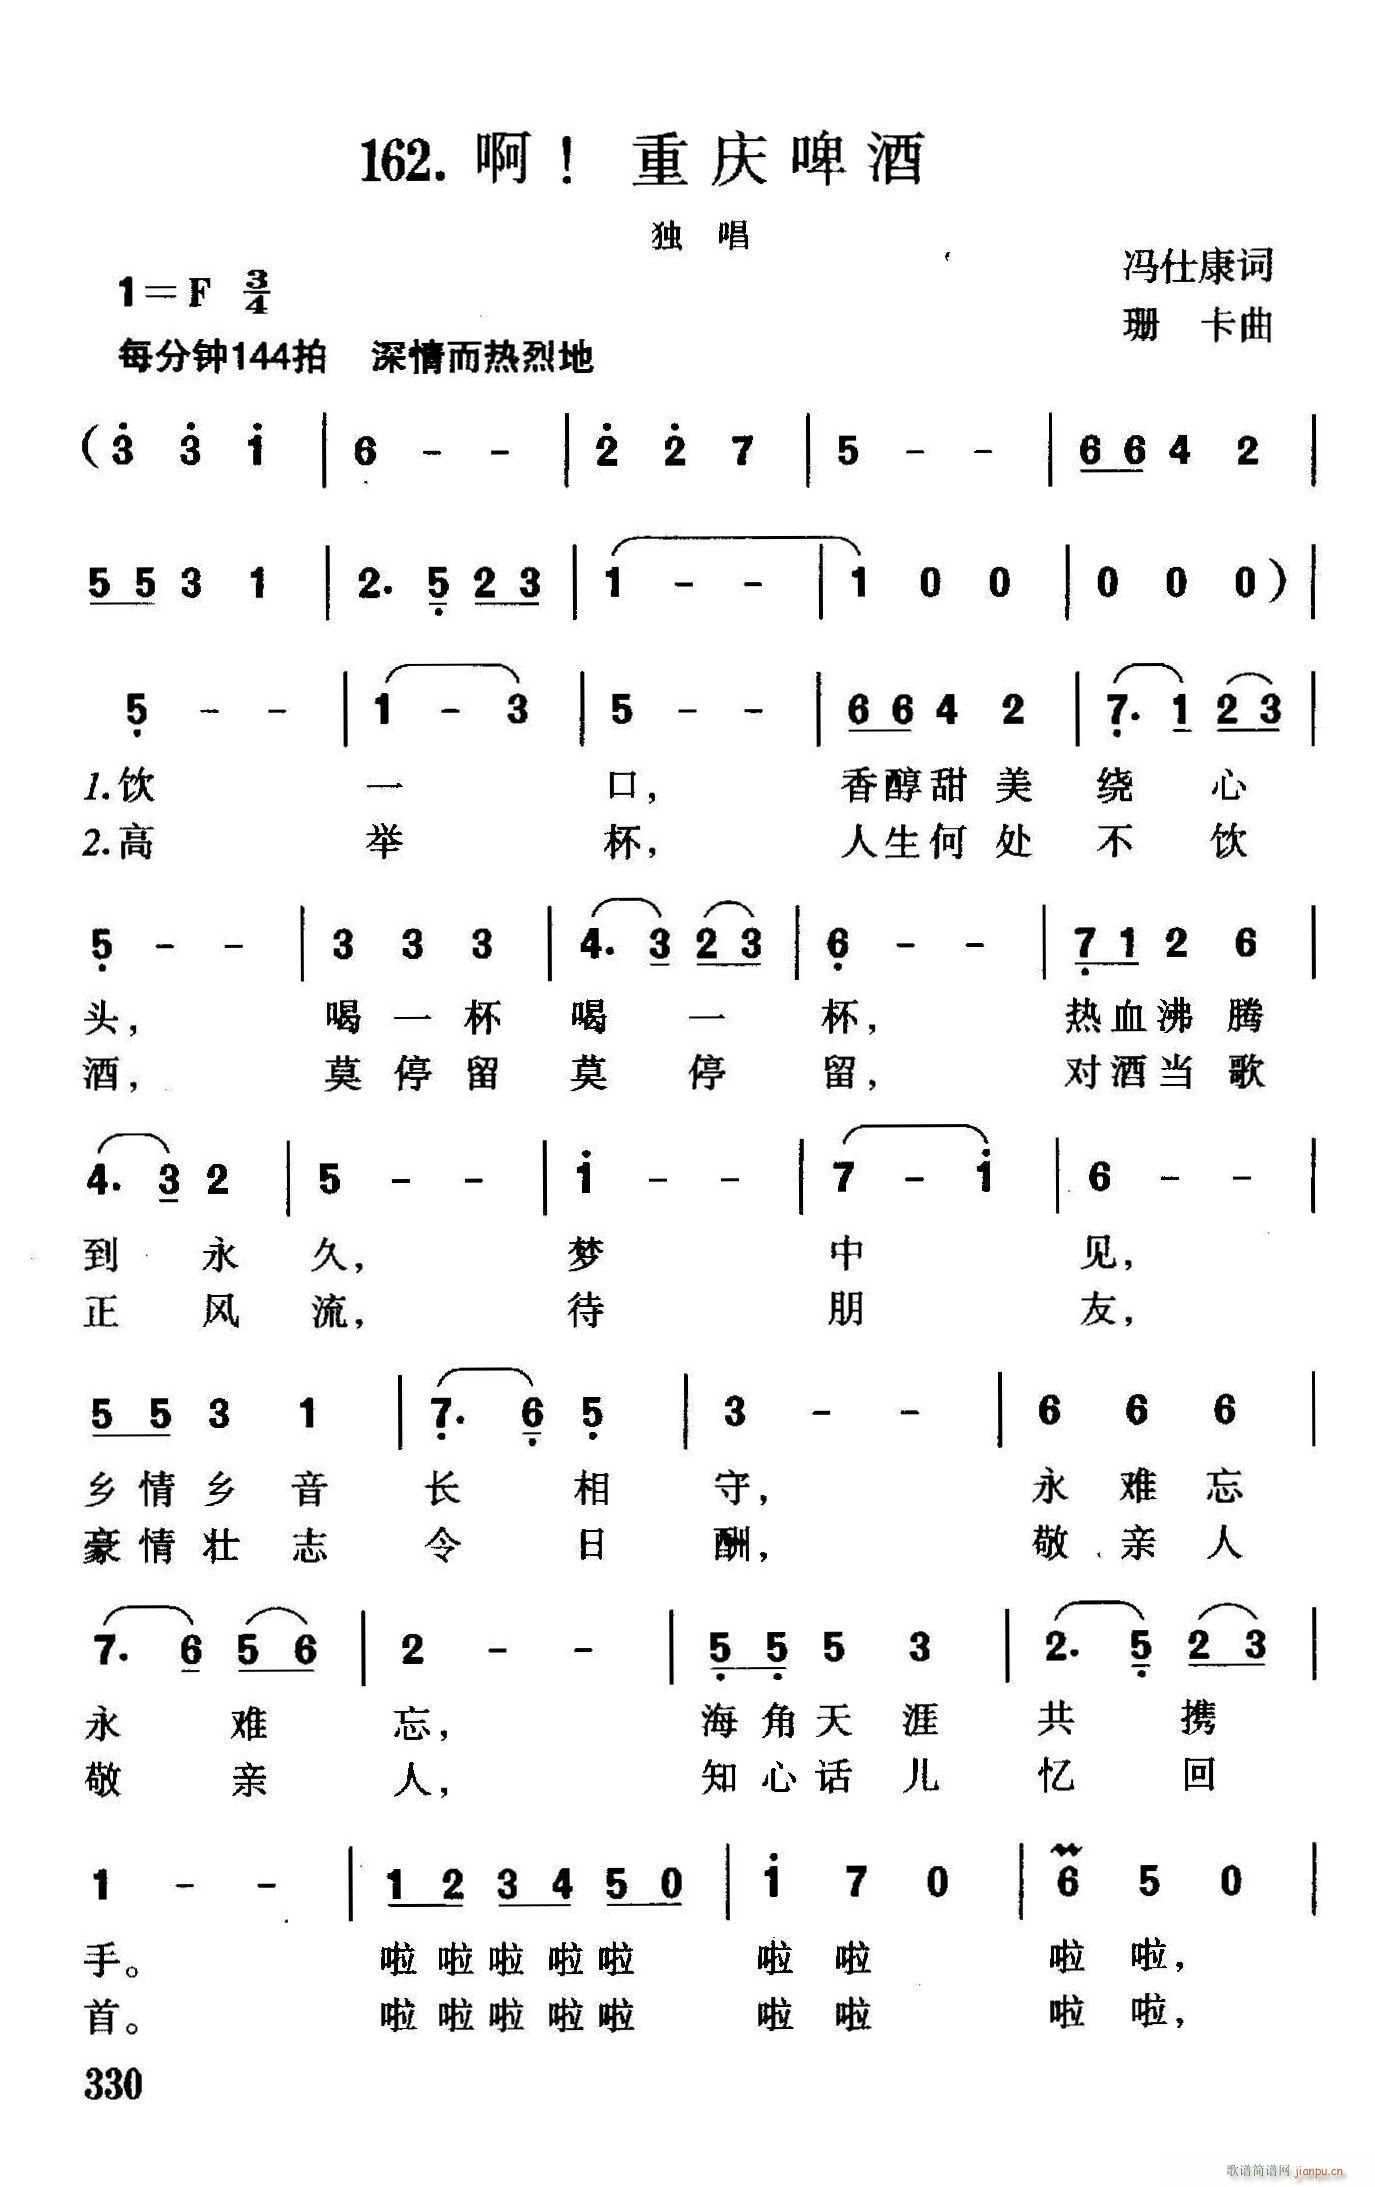 162. 啊！ 重庆啤酒
独 唱
1=F 3/4
冯仕康词
珊 卡曲
每分钟144拍 深情而热烈地
(3̇ 3̇ 1̇ | 6 - - | 2̇ 2̇ 7 | 5 - - | 6 6 4 2 |
5 5 3 1 | 2. 5̣ 2 3 | 1 - - | 1 0 0 | 0 0 0) |
5̣ - - | 1 - 3 | 5 - - | 6 6 4 2 | 7̣. 1 2 3 |
1.饮 一 口， 香醇甜美 绕 心
2.高 举 杯， 人生何处 不 饮
5̣ - - | 3 3 3 | 4. 3 2 3 | 6̣ - - | 7̣ 1 2 6 |
头， 喝一杯 喝 一 杯， 热血沸腾
酒， 莫停留 莫 停 留， 对酒当歌
4. 3 2 | 5 - - | 1̇ - - | 7 - 1̇ | 6 - - |
到 永 久， 梦 中 见，
正 风 流， 待 朋 友，
5 5 3 1 | 7̣. 6̣ 5̣ | 3 - - | 6 6 6 |
乡情乡音 长 相 守， 永难忘
豪情壮志 令 日 酬， 敬亲人
7. 6 5 6 | 2 - - | 5̣ 5̣ 5 3 | 2. 5̣ 2 3 |
永 难 忘， 海角天涯 共 携
敬 亲 人， 知心话儿 忆 回
1 - - | 1 2 3 4 5 0 | 1̇ 7 0 | 6 5 0 |
手。 啦啦啦啦啦 啦啦 啦啦，
首。 啦啦啦啦啦 啦啦 啦啦，
330
歌谱简谱网 jianpu.cn